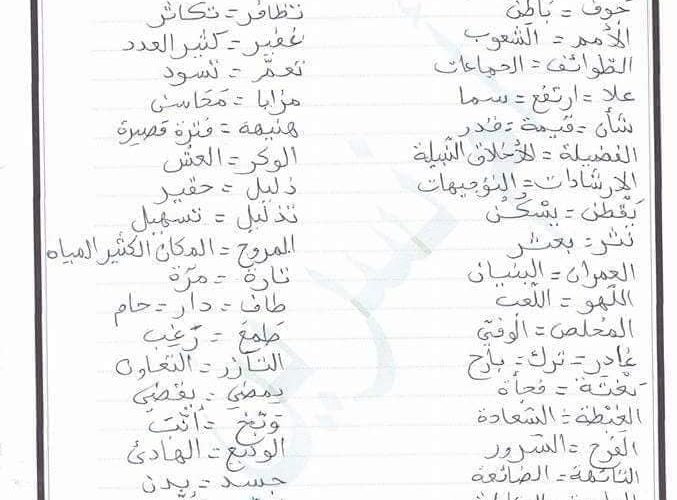 جوف = باطن
الأمم = الشعوب
الطوائف = الجماعات
علا = ارتفع = سما
شأن = قيمة = قدر
الفضيلة = الأخلاق النبيلة
الإرشادات = التوجيهات
يَقْطن = يسْكُنُ
نثر = بعثر
العمران = البنيان
اللهو = اللعب
المُخلص = الوفيّ
غادر = ترك = بارح
بَغْتَة = فجأة
الغبطة = السّعادة
الفرح = السّرور
التائهة = الضائعة
تظافر = تكاثر
غفير = كثير العدد
تعمّ = تسود
مزايا = مَحَاسن
هنيهة = فترة قصيرة
الوكر = العشّ
ذليل = حقير
تذليل = تسهيل
المروج = المكان الكثير المياه
تارة = مرّة
طاف = دار = حام
طمِعَ = رَغِب
التآزر = التّعاون
يمضي = يقضي
وبّخ = أنّبَ
الوديع = الهادئ
جسد = بدن